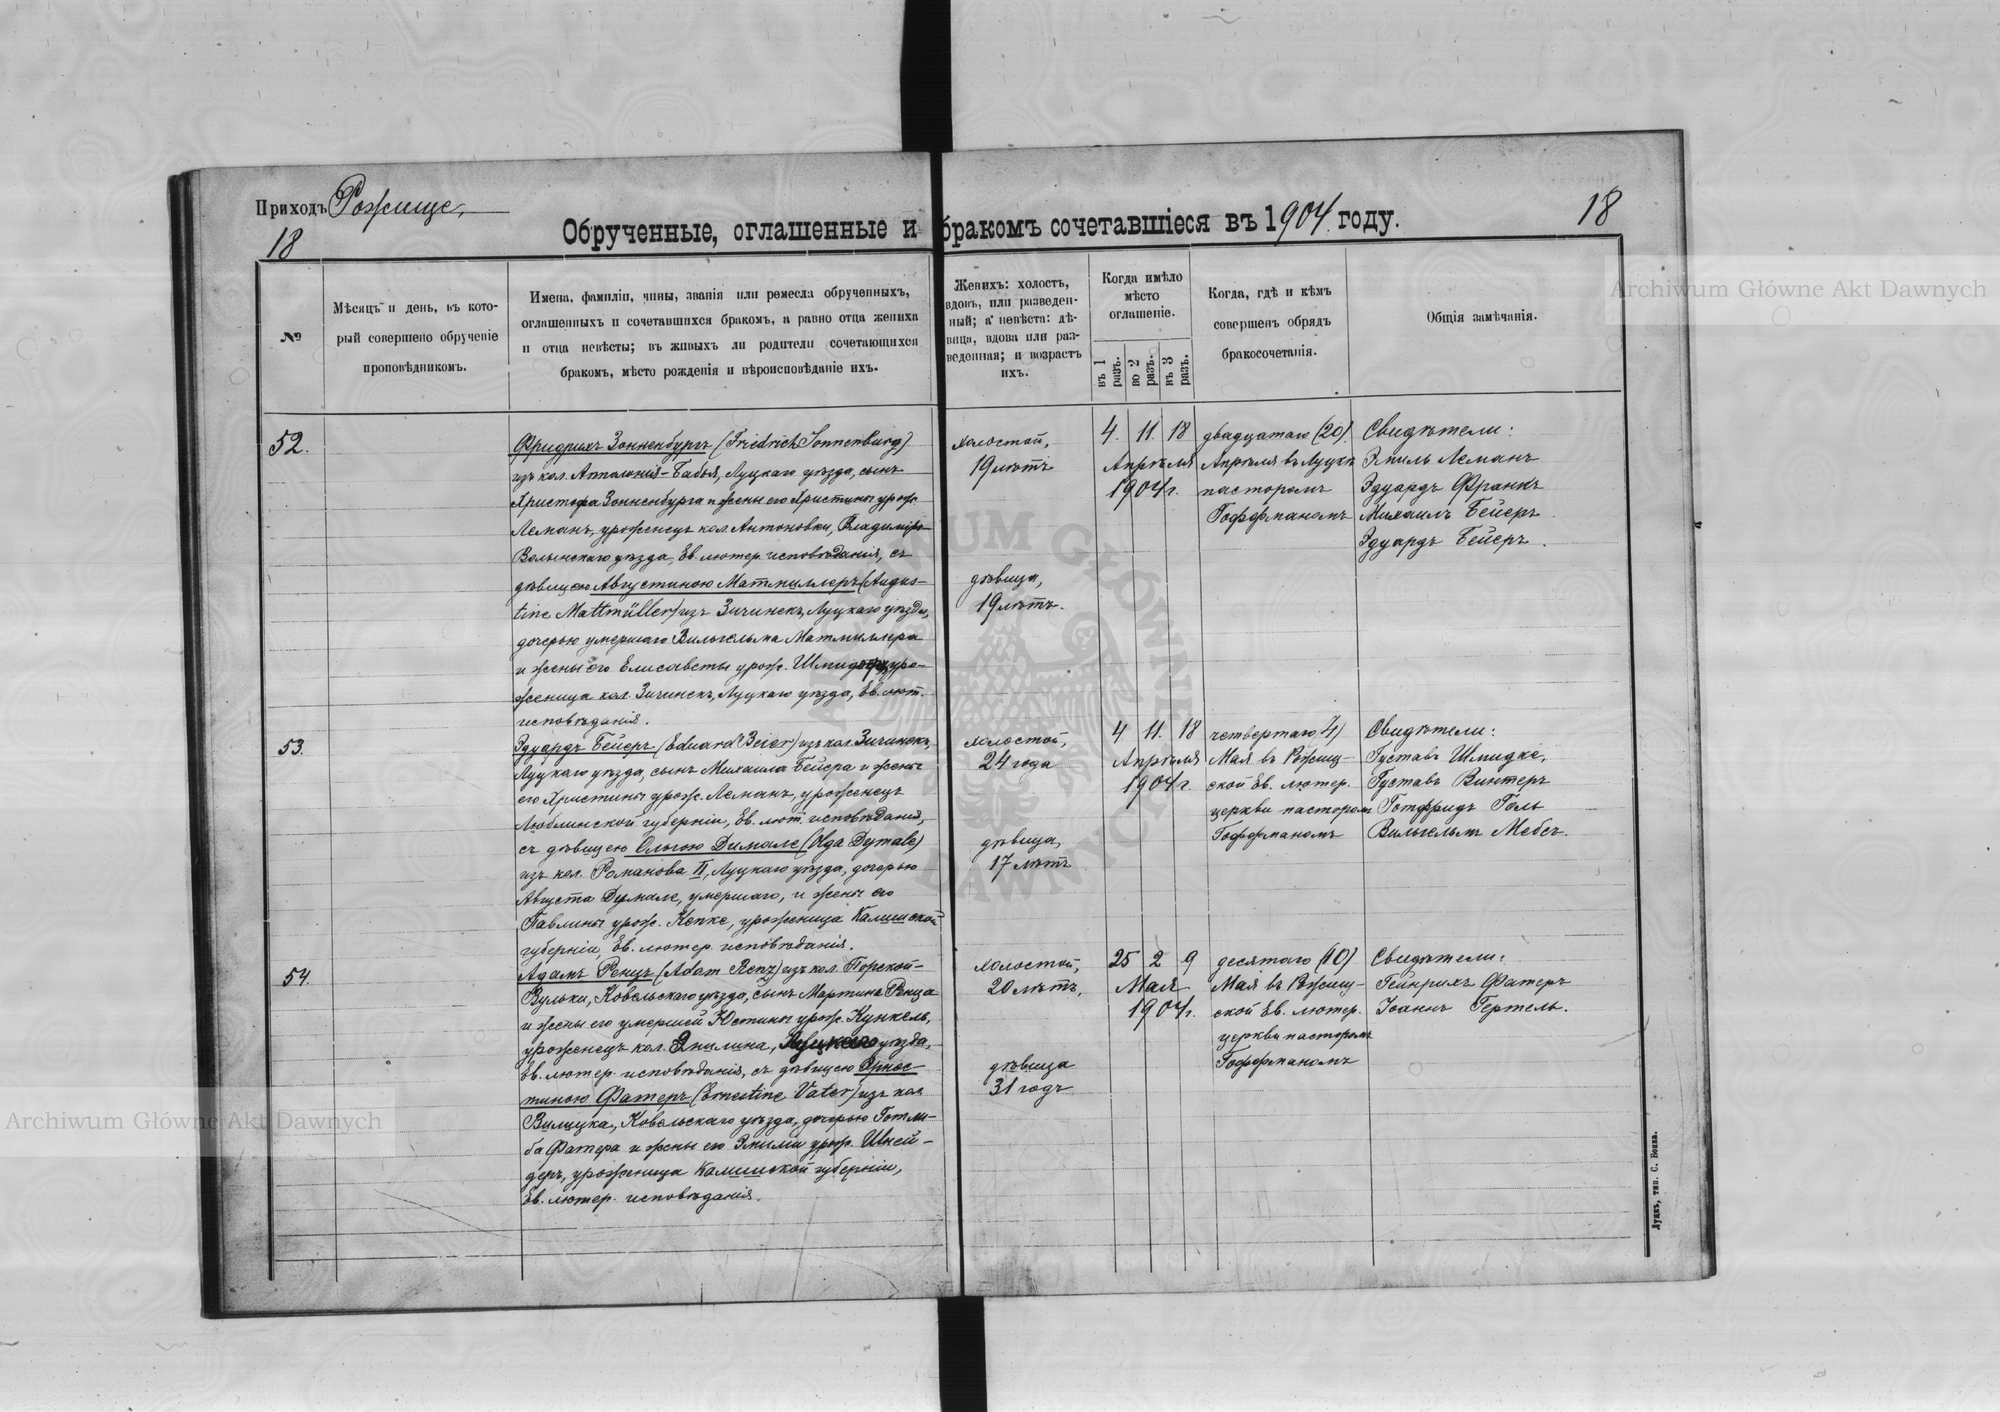 Приходъ Рожище,
18
18
Обрученные, оглашенные и бракомъ сочетавшіеся въ 1904 году.
№
Мѣсяцъ и день, въ кото-
рый совершено обрученіе
проповѣдникомъ.
Имена, фамиліи, чины, званія или ремесла обрученныхъ,
оглашенныхъ и сочетавшихся бракомъ, а равно отца жениха
и отца невѣсты; въ живыхъ ли родители сочетающихся
бракомъ, мѣсто рожденія и вѣроисповѣданіе ихъ.
Женихъ: холостъ,
вдовъ, или разведен-
ный; а невѣста: дѣ-
вица, вдова или раз-
веденная; и возрастъ
ихъ.
Когда имѣло
мѣсто
оглашеніе.
въ 1 разъ.
во 2 разъ.
въ 3 разъ.
Когда, гдѣ и кѣмъ
совершенъ обрядъ
бракосочетанія.
Общія замѣчанія.
52.
Фридрихъ Зонненбургъ (Friedrich Sonnenburg)
изъ кол. Апполонія-Бабья, Луцкаго уѣзда, сынъ
Христофа Зонненбурга и жены его Христины урож.
Леманъ, уроженецъ кол. Антоновки, Владиміръ-
Волынскаго уѣзда, Ев. лютер. исповѣданія, съ
дѣвицею Августиною Матмиллеръ (Augus-
tine Mattmüller) изъ Зичинекъ, Луцкаго уѣзда,
дочерью умершаго Вильгельма Матмиллера
и жены его Елисаветы урож. уро-
женица кол. Зичинекъ, Луцкаго уѣзда, Ев. лют.
исповѣданія.
холостой,
19 лѣтъ
дѣвица,
19 лѣтъ.
4. 11. 18
Апрѣля
1904 г.
двадцатаго (20).
Апрѣля въ Луцкѣ
пасторомъ
Гоффманомъ
Свидѣтели:
Эмиль Леманъ
Эдуардъ Франкъ
Михаилъ Бейеръ
Эдуардъ Бейеръ.
53.
Эдуардъ Бейеръ (Eduard Beier) изъ кол. Зичинекъ,
Луцкаго уѣзда, сынъ Михаила Бейера и жены
его Христины урож. Леманъ, уроженецъ
Люблинской губерніи, Ев. лют. исповѣданія,
съ дѣвицею Ольгою Димале (Olga Dymale)
изъ кол. Романова II, Луцкаго уѣзда, дочерью
Августа Думале, умершаго, и жены его
Павлины урож. Кепке, уроженица Калишской
губерніи, Ев. лютер. исповѣданія.
холостой,
24 года
дѣвица,
17 лѣтъ
4 11. 18
Апрѣля
1904 г.
четвертаго 4)
Мая въ Рожищ-
ской Ев. лютер.
церкви пасторомъ
Гоффманомъ
Свидѣтели:
Густавъ Шмидке,
Густавъ Винтеръ
Готфридъ Голь
Вильгельмъ Мебсъ.
54.
Адамъ Ренцъ (Adam Renz) изъ кол. Порской-
Вульки, Ковельскаго уѣзда, сынъ Мартина Ренца
и жены его умершей Юстины урож. Кункель,
уроженецъ кол. Янилина, Луцкаго уѣзда,
Ев. лютер. исповѣданія, съ дѣвицею Эрнес-
тиною Фатеръ (Ernestine Vater) изъ кол
Вилицка, Ковельскаго уѣзда, дочерью Готли-
ба Фатера и жены его Эмиліи урож. Шней-
деръ, уроженица Калишской губерніи,
Ев. лютер. исповѣданія.
холостой,
20 лѣтъ,
дѣвица
31 годъ
25 2 9
Мая
1904 г.
десятаго (10)
Мая въ Рожищ-
ской Ев. лютер.
церкви пасторомъ
Гоффманомъ
Свидѣтели:
Гейнрихъ Фатеръ
Іоаннъ Гертель.
Луцкъ, тип. С. Бонка.
Archiwum Główne Akt Dawnych
Archiwum Główne Akt Dawnych